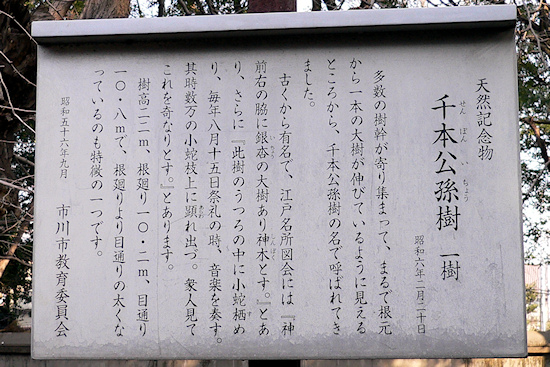 天然記念物
千本公孫樹 一樹
せん ぼん い ちょう
昭和六年二月二十日
多数の樹幹が寄り集まって、まるで根元
から一本の大樹が伸びているように見える
ところから、千本公孫樹の名で呼ばれてき
ました。
古くから有名で、江戸名所図会には『神
前右の脇に銀杏の大樹あり神木とす。』とあ
いちょう
しんぼく
り、さらに『此樹のうつろの中に小蛇栖め
り、毎年八月十五日祭礼の時、音楽を奏す。
其時数万の小蛇枝上に顕れ出づ。衆人見て
あらわ
これを奇なりとす。』とあります。
樹高二二m、根廻り一〇・二m、目通り
一〇・八mで、根廻りより目通りの太くな
っているのも特徴の一つです。
昭和五十六年九月
市川市教育委員会